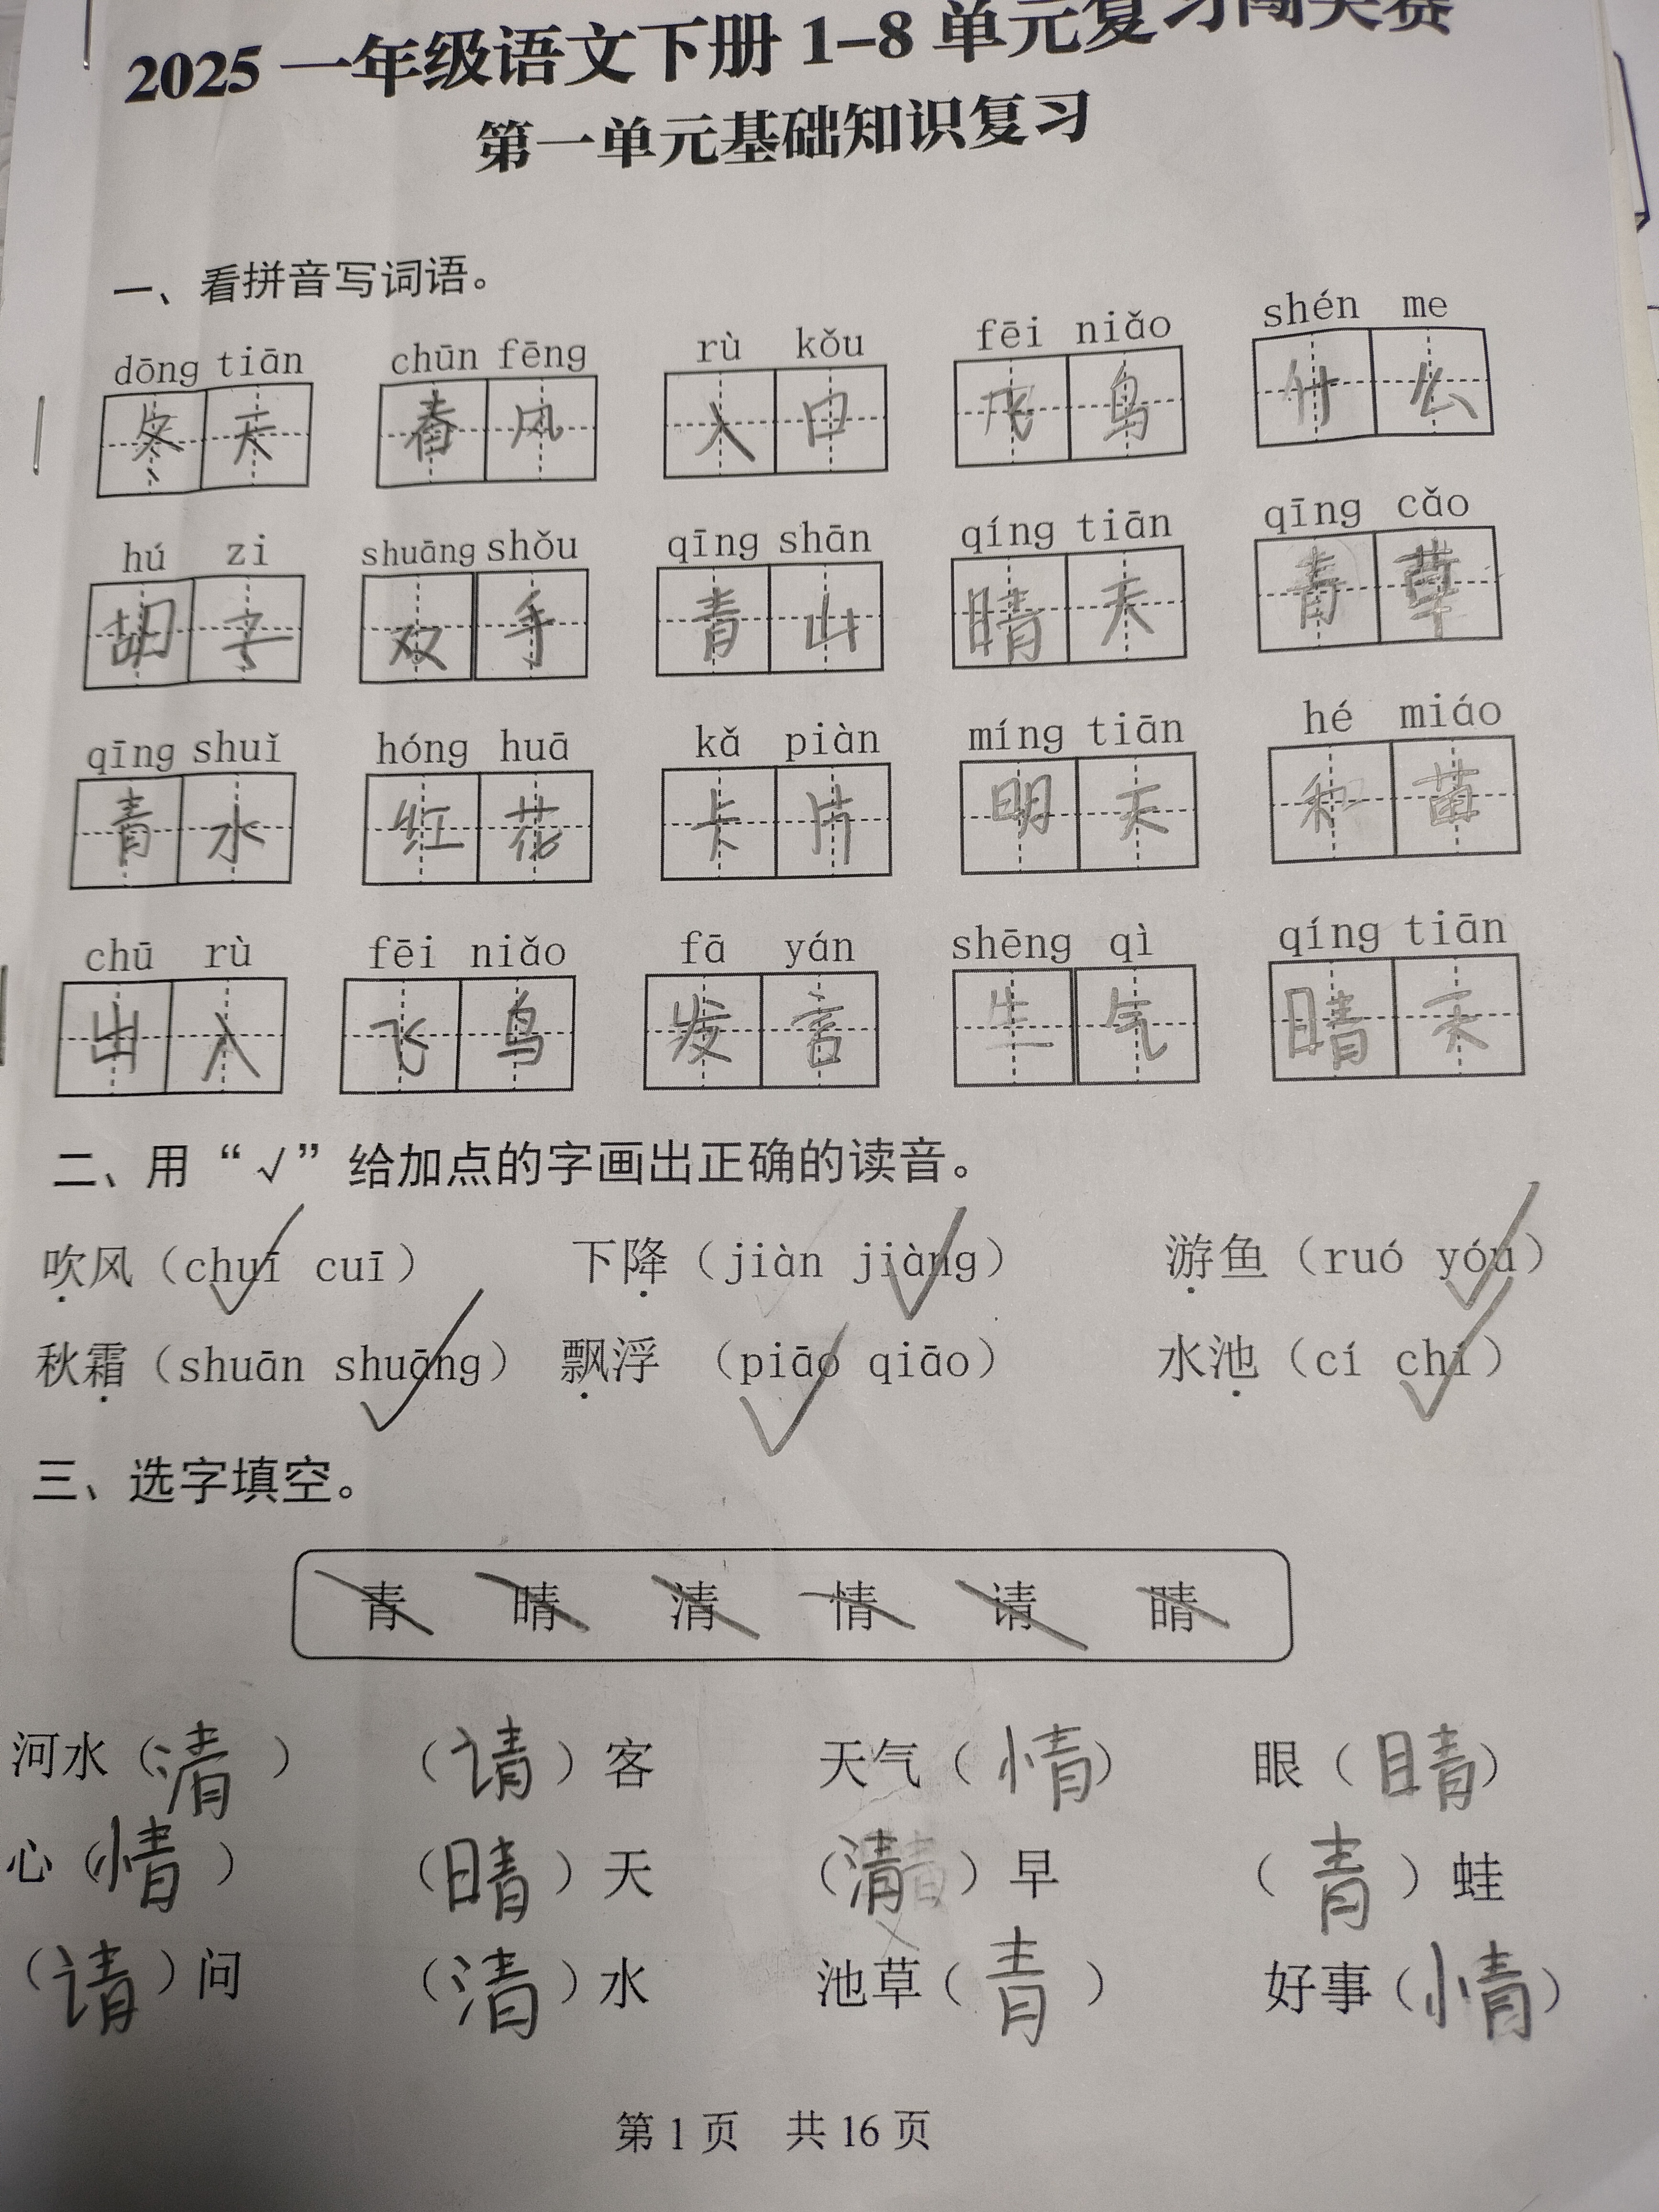 2025 一年级语文下册 1–8 单元复习闯关赛
第一单元基础知识复习
一、看拼音写词语。
dōng tiān chūn fēng rù kǒu fēi niǎo shén me
冬天 春风 入口 飞鸟 什么
hú zi shuāng shǒu qīng shān qíng tiān qīng cǎo
胡子 双手 青山 晴天 青草
qīng shuǐ hóng huā kǎ piàn míng tiān hé miáo
青水 红花 卡片 明天 和苗
chū rù fēi niǎo fā yán shēng qì qíng tiān
出入 飞鸟 发言 生气 晴天
二、用“√”给加点的字画出正确的读音。
吹风（chuī cuī） 下降（jiàn jiàng） 游鱼（ruó yóu）
秋霜（shuān shuāng） 飘浮（piāo qiāo） 水池（cí chí）
三、选字填空。
青 晴 清 情 请 睛
河水（清） （请）客 天气（情） 眼（睛）
心（情） （晴）天 （清）早 （青）蛙
（请）问 （清）水 池草（青） 好事（情）
第 1 页 共 16 页